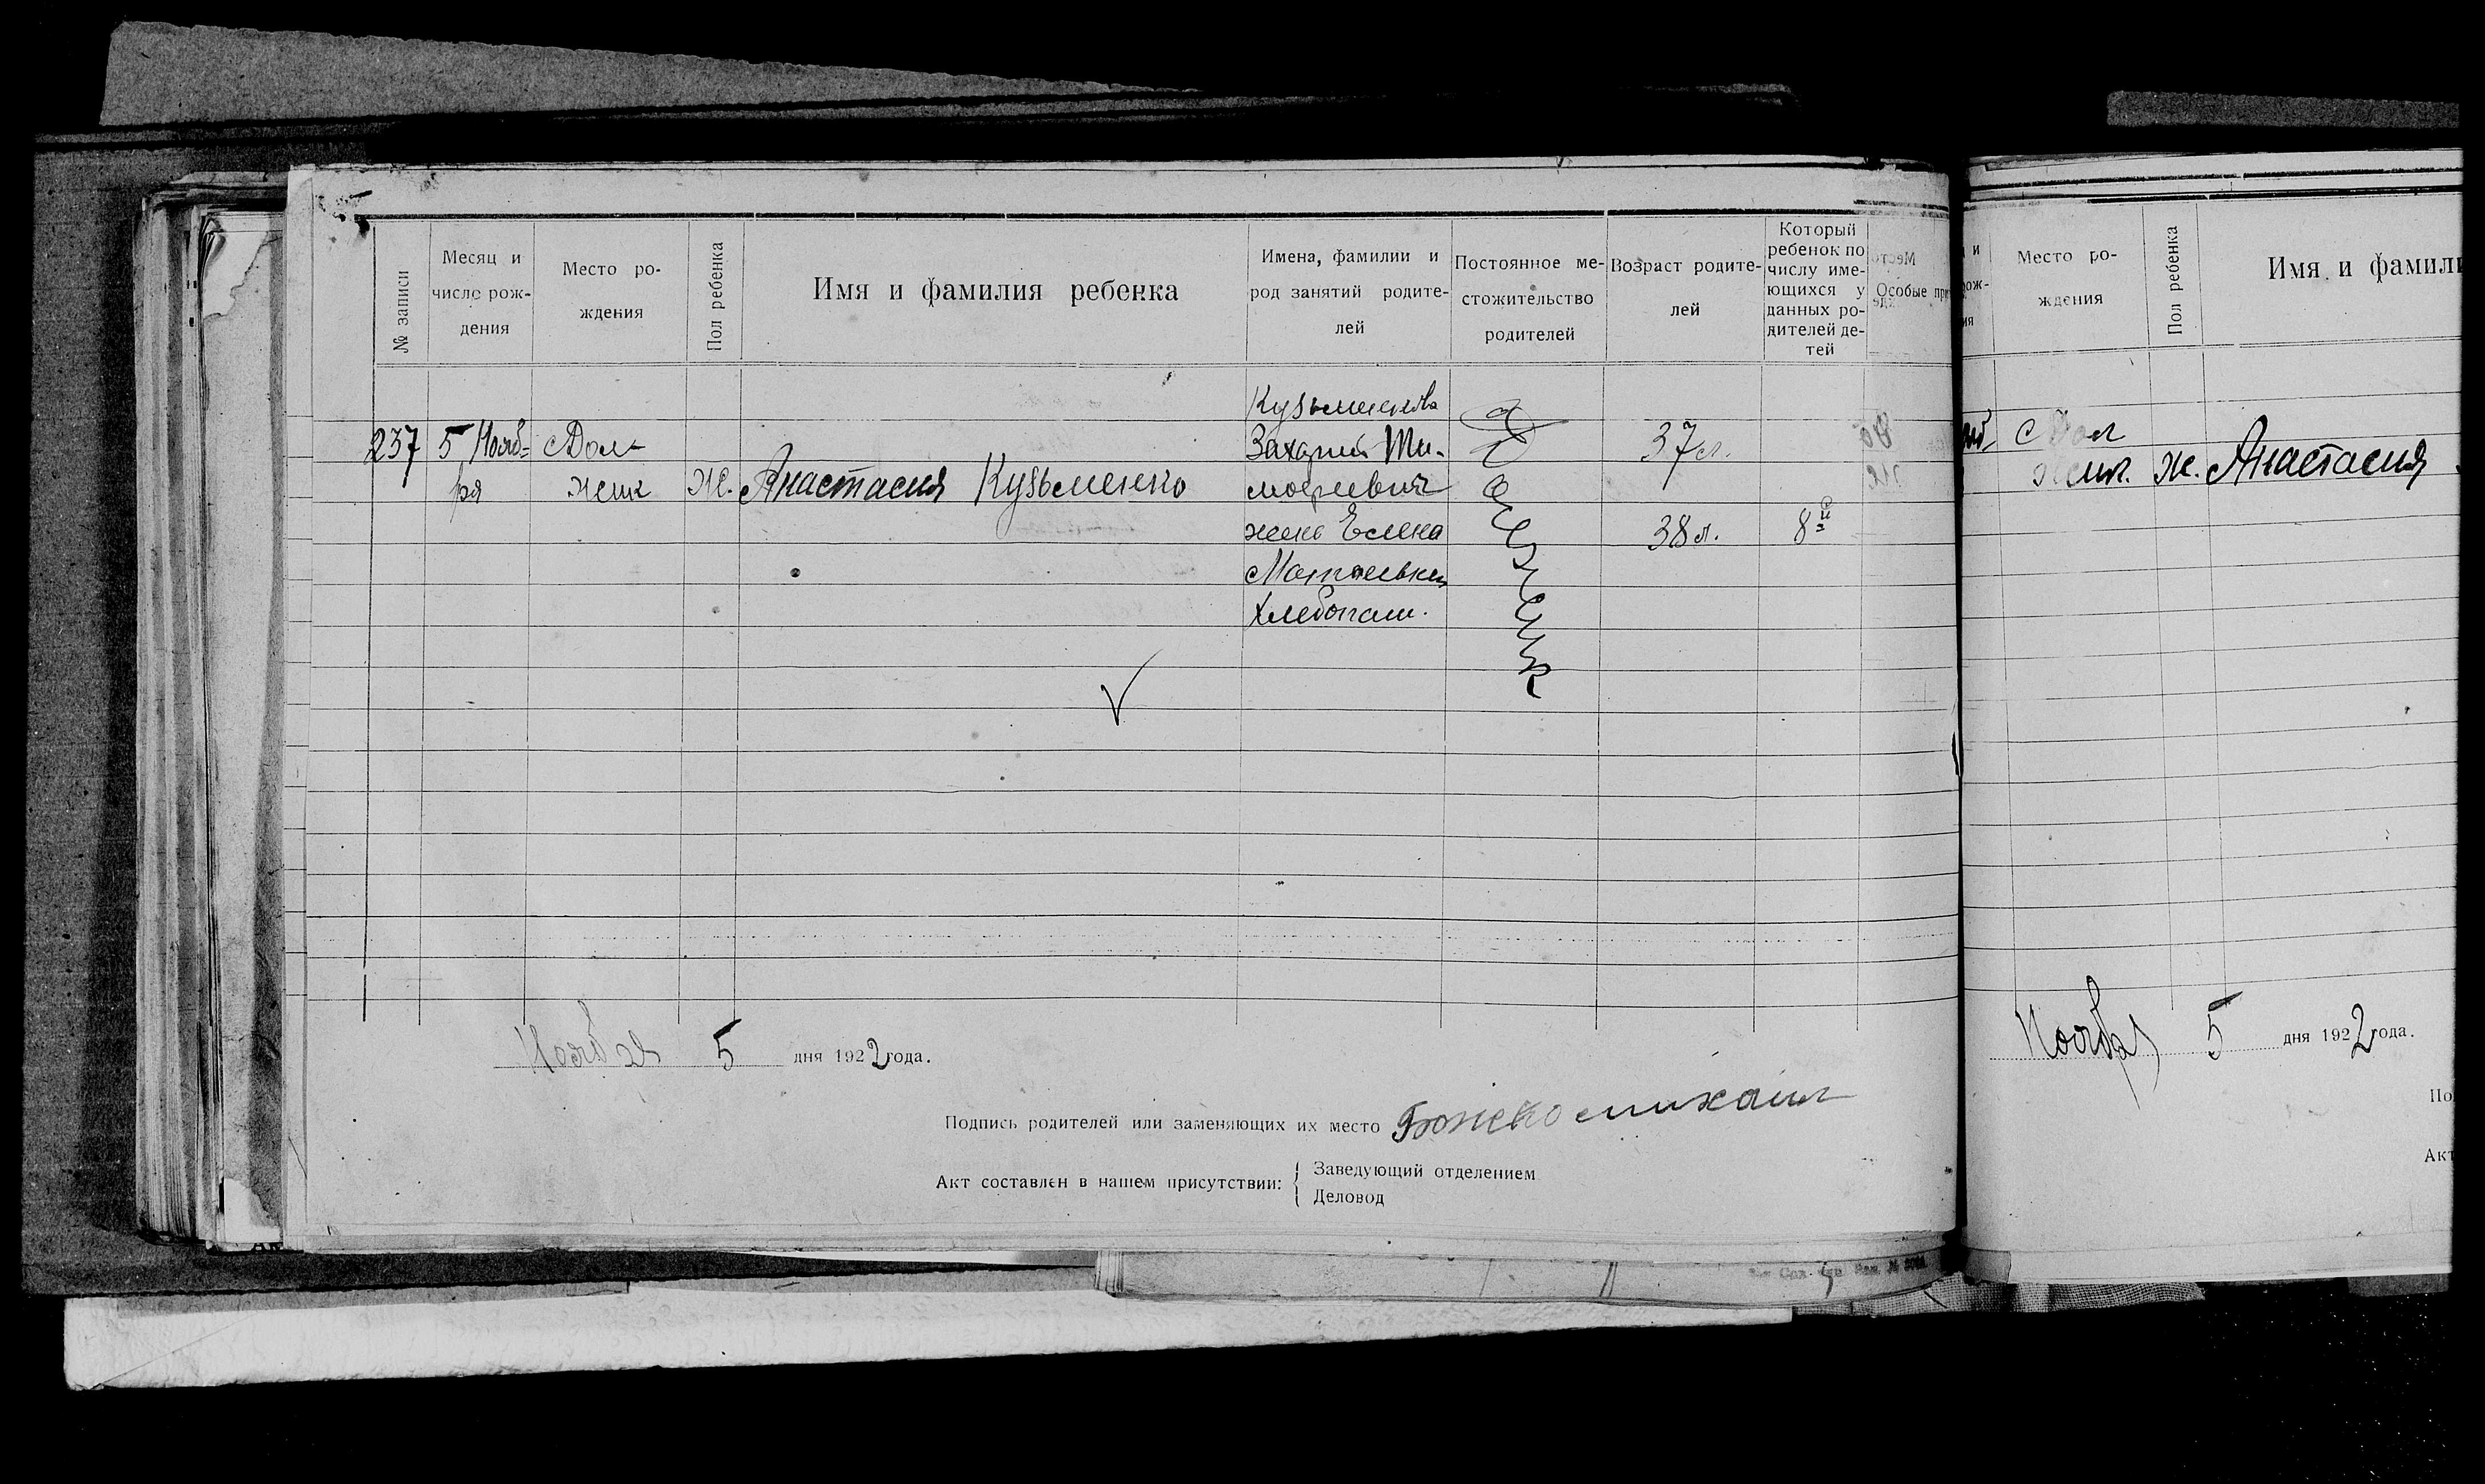 № записи
Месяц и число рождения
Место ро-
ждения
Пол ребенка
Имя и фамилия ребенка
Имена, фамилии и
род занятий родите-
лей
Постоянное ме-
стожительство
родителей
Возраст родите-
лей
Который
ребенок по
числу име-
ющихся у
данных ро-
дителей де-
тей
Особые при
Кузьменкова
237 5 Нояб= с Дол- Захарий Ти- 37 л.
ря жик Ж. Анастасия Кузьменко мофеевич
жена Елена 38 л. 8й
Матвеевна
Хлебопаш.
Ноября 5 дня 1922 года.
Подпись родителей или заменяющих их место Божко михаил
Акт составлен в нашем присутствии: { Заведующий отделением
Деловод
Место ро-
ждения
Пол ребенка
Имя и фамили
с Дол
жик. Ж. Анастасия
Ноября 5 дня 1922 года.
По
Акт